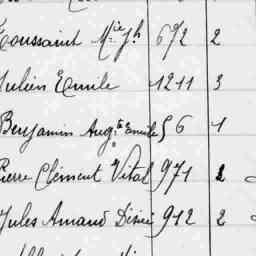 Toussaint M^ie J^h 672 2
Julien Emile 1211 3
Benjamin Aug^te Emile 56 1
Pierre Clément Vital 971 2
Jules Amand Désiré 912 2